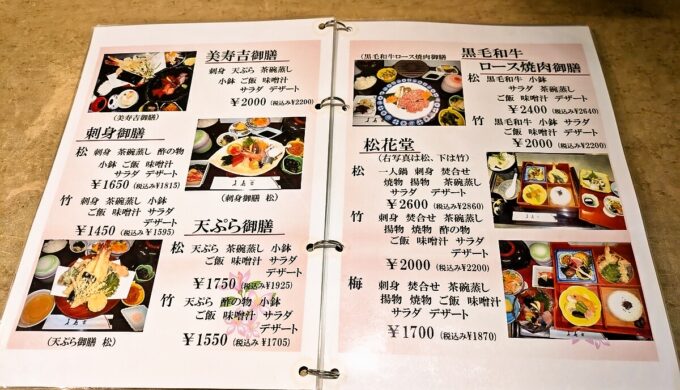 美寿吉御膳
刺身 天ぷら 茶碗蒸し
小鉢 ご飯 味噌汁
サラダ デザート
¥2000 (税込み¥2200)
(美寿吉御膳)
刺身御膳
松 刺身 茶碗蒸し 酢の物
小鉢 ご飯 味噌汁
サラダ デザート
¥1650 (税込み¥1815)
竹 刺身 茶碗蒸し 小鉢
ご飯 味噌汁 サラダ
デザート
¥1450 (税込み¥1595)
(刺身御膳 松)
天ぷら御膳
松 天ぷら 茶碗蒸し 小鉢
ご飯 味噌汁 サラダ
デザート
¥1750 (税込み¥1925)
竹 天ぷら 酢の物 小鉢
ご飯 味噌汁 サラダ
デザート
¥1550 (税込み¥1705)
(天ぷら御膳 松)
(黒毛和牛ロース焼肉御膳
黒毛和牛
ロース焼肉御膳
松 黒毛和牛 小鉢
サラダ 茶碗蒸し
ご飯 味噌汁 デザート
¥2400 (税込み¥2640)
竹 黒毛和牛 小鉢 サラダ
ご飯 味噌汁 デザート
¥2000 (税込み¥2200)
松花堂
(右写真は松、下は竹)
松 一人鍋 刺身 焚合せ
焼物 揚物 茶碗蒸し
サラダ デザート
¥2600 (税込み¥2860)
竹 刺身 焚合せ 茶碗蒸し
揚物 焼物 酢の物
ご飯 味噌汁 サラダ
デザート
¥2000 (税込み¥2200)
梅 刺身 焚合せ 茶碗蒸し
揚物 焼物 ご飯 味噌汁
サラダ デザート
¥1700 (税込み¥1870)